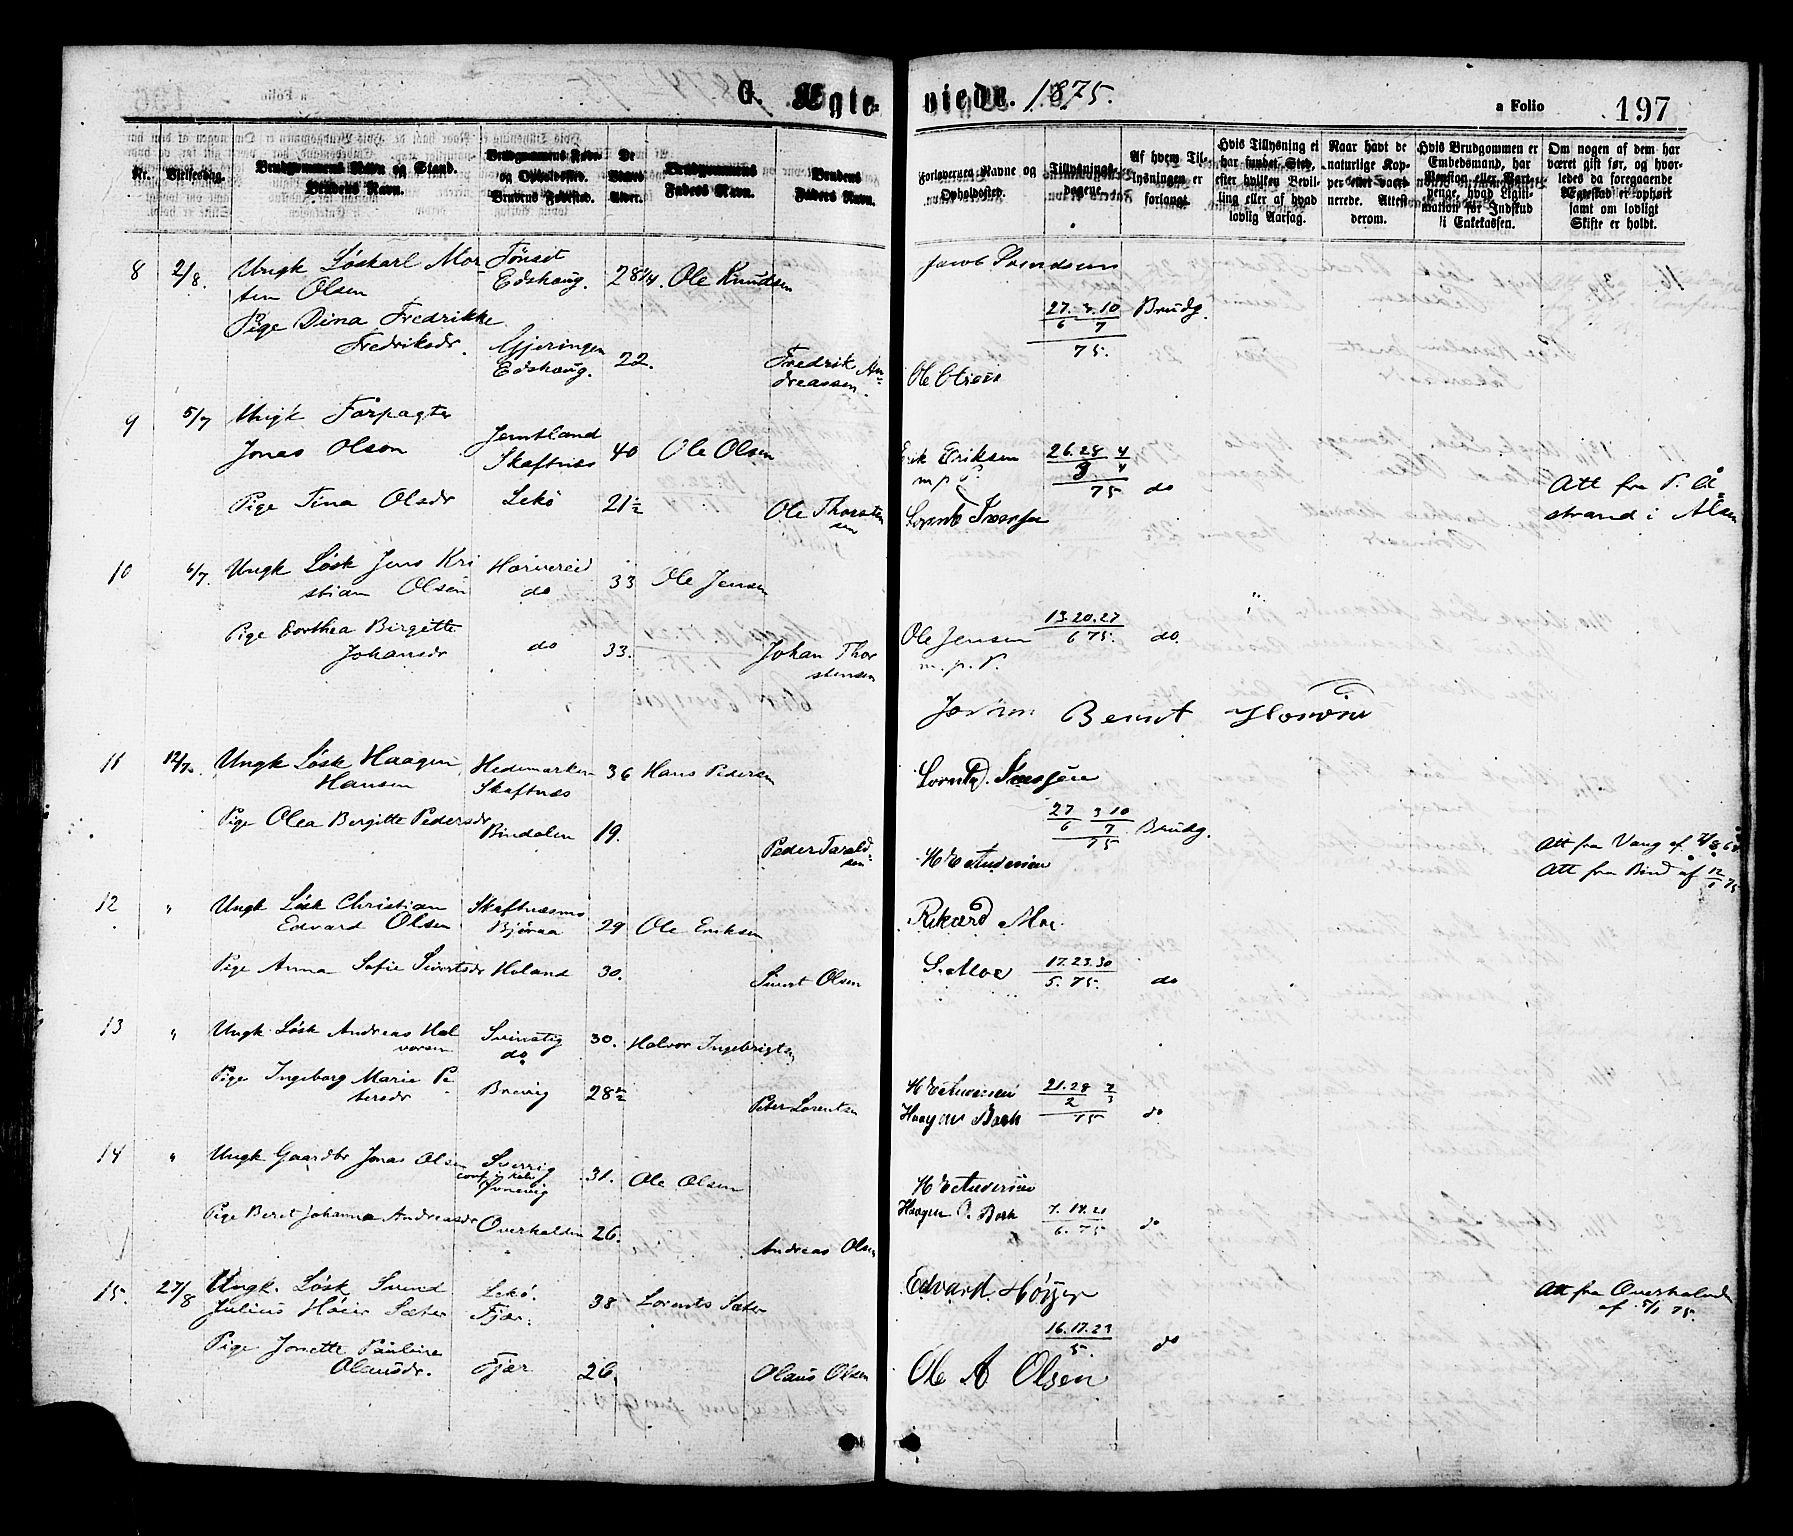 G. Ægte= viede. 1875. a Folio 197
Nr. Vielsesdag. Brudgommens Navn og Stand. Brudens Navn. Brudgommens Føde- og Opholdssted. Brudens Fødested. De Viedes Alder. Brudgommens Faders Navn. Brudens Faders Navn. Forlovernes Navne og Opholdssted. Tillysnings- dagene. Af hvem Til- lysningen er forlangt. Hvis Tillysning ei har fundet Sted, efter hvilken Bevil- ling eller af hvad lovlig Aarsag. Naar havt de naturlige Kop- per eller vacci- nerede. Attest derom. Hvis Brudgommen er Embedsmand, har Pension eller Var- penge, hvad Legiti- mation for Indskud i Enkekassen. Om nogen af dem har været gift før, og hvor- ledes da foregaaende Ægteskab er ophørt samt om lovligt Skifte er holdt.
8 2/8. Ungk Løskarl Mor- Tønset Jacob Svendsen
ten Olsen Edshaug. 28 1/4. Ole Knudsen
Pige Dina Fredrikke 27. 3. 10 Brudg.
6 7
Fredriksdr. Gjeringen 22. Fredrik An= 75.
Edshaug. dreassen Ole Olsen
9 5/7 Ungk Forpagter
Jonas Olson Jemtland Skaftnæs 40 Ole Olsen Erik Eriksen 26.28 4
m p P. 3 4
75 do
Pige Tina Olsdr Lekö 21 1/2 Ole Thorsten sen Att fra P. Å=
strand i Alsen
10 6/7. Ungk Løsk Jens Kri Horvereid 33 Ole Jensen
stian Olsen do
Pige Dorthea Birgitte Ole Jensen 13.20.27 do.
6 75.
Johansdr do 33. Johan Thor stensen m. p. P.
Bernt
11 12/7. Ungk Løsk Haagen Hedemarken 36 Hans Pedersen
Hansen Skaftnæs
27 3 10
6 7 Brudg.
75
Pige Olea Bergitte Pedersdr Bindalen 19. Peder Tarald= sen Att fra Vang af
H E Andersen Att fra Bind af 12/1 75
12 " Ungk Løsk Christian Skaftnæsmo Rikard Moe
Edvard Olsen Björaa 29 Ole Eriksen
Pige Anna Sofie Sivertsdr Høland 30. Sivert Olsen S. Moe 17.23.30 do
5. 75.
13 " Ungk Løsk Andreas Hal Svinstig 30. Halvor Ingebrigtsen
vorsen do
Pige Ingeborg Marie Pe Brevig 28 1/2 H E Andersen 21.28 7
2 3
tersdr Peter Lorentsen Haagen Bach 75 do
14 " Ungk Gaardbr Jonas Olsen Sverrig 31. Ole Olsen
H E Andersen
Pige Beret Johanna Andreasdr Overhalden 26. Andreas Olsen Haagen P. Bach 7.14.21 do
6. 75
15. 27/8 Ungk. Løsk Svend Lekö. Edvard Höyer Att fra Overhalden
Julius Höier Sæter Fjær. 38 Lorents Sæter af 5/1 75.
16.17.23 do
5.
Pige Jonette Pauline Ole A Olsen
Olausdr. Fjær 26. Olaus Olsen